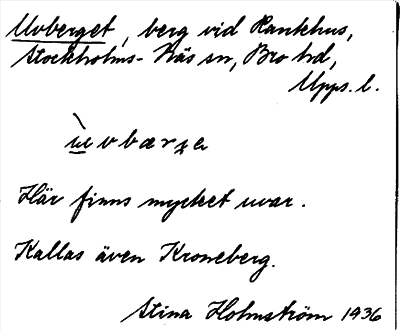 Uvberget, berg vid Rankhus,
Stockholms-Näs sn, Bro hd,
Upps. l.
Här finns mycket uvar.
Kallas även Kroneberg.
Stina Holmström 1936